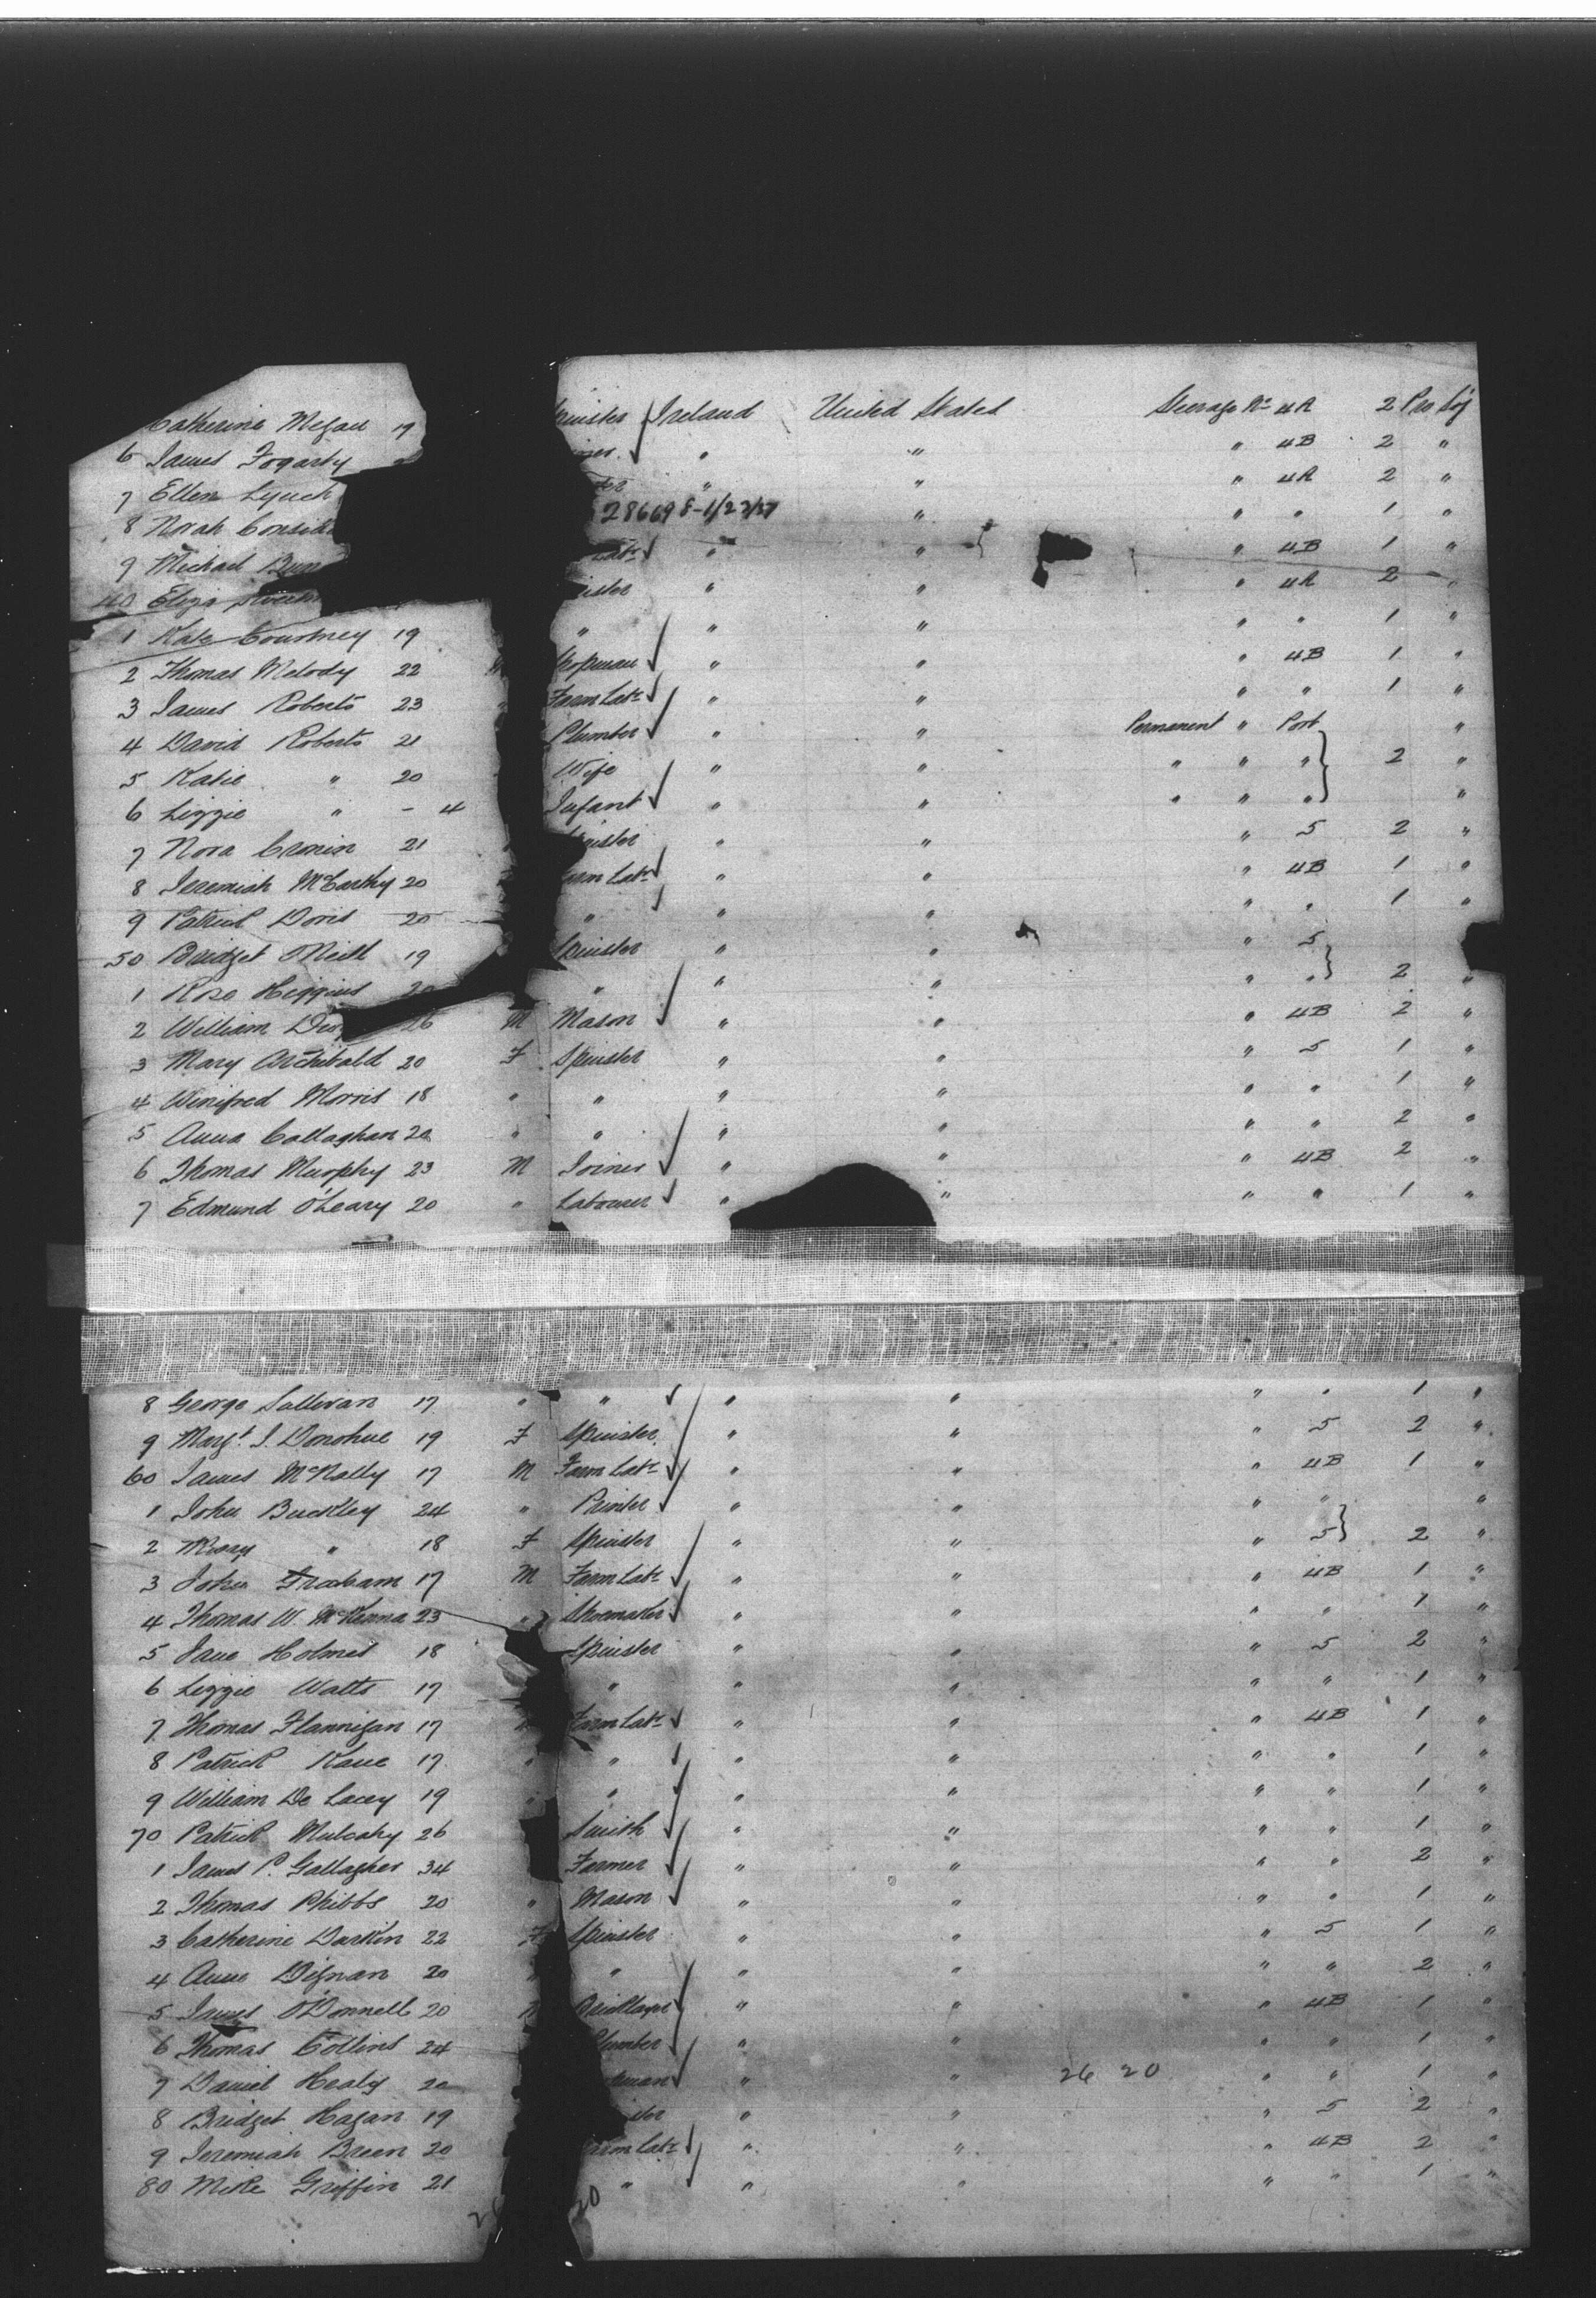 Catherine Megan 19 Ireland United States Steerage 4A 2
6 James Fogarty " " " 4B 2 "
7 Ellen Lynch " " " 4A 2 "
8 Norah 28669 8-1/23/37 " " " 1 "
9 Michael Lab'r " " " 4B 1 "
40 Eliza " " " 4A 2 "
1 Kate Courtney 19 " " " " " 1 "
2 Thomas Melody 22 M Shopman " " " 4B 1 "
3 James Roberts 23 Farm Lab'r " " " " 1 "
4 David Roberts 21 Plumber " " Permanent " Port "
5 Katie " 20 Wife " " " " " 2 "
6 Lizzie " - 4 Infant " " " " " "
7 Nora Cronin 21 " " " 5 2 "
8 Jeremiah McCarthy 20 Lab'r " " " 4B 1 "
9 Patrick Doris 20 " " " " " 1 "
50 Bridget 19 Spinster " " " 5
1 Rose Higgins 20 " " " " " 2 "
2 William 26 M Mason " " " 4B 2 "
3 Mary Archibald 20 F Spinster " " " 5 1 "
4 Winifred Morris 18 " " " " " " 1 "
5 Anna Callaghan 20 " " " " " " 2 "
6 Thomas Murphy 23 M Joiner " " " 4B 2 "
7 Edmund O'Leary 20 " Labourer " " " " 1 "
8 George Sullivan 17 " " " " " " 1 "
9 Margt. J. Donohue 19 F Spinster " " " 5 2 "
60 James McNally 17 M Farm Lab'r " " " 4B 1 "
1 John Buckley 24 " Printer " " " " "
2 Mary " 18 F Spinster " " " 5 2 "
3 John Graham 17 M Farm Lab'r " " " 4B 1 "
4 Thomas W. McKenna 23 " Shoemaker " " " " 1 "
5 Jane Holmes 18 Spinster " " " 5 2 "
6 Lizzie Watts 17 " " " " " 1 "
7 Thomas Flannigan 17 " Farm Lab'r " " " 4B 1 "
8 Patrick Kane 17 " " " " " " 1 "
9 William De Lacey 19 " " " " " " 1 "
70 Patrick Mulcahy 26 Smith " " " " 1 "
1 James P. Gallagher 34 Farmer " " " " 2 "
2 Thomas Phibbs 20 " Mason " " " " 1 "
3 Catherine Durkin 22 F Spinster " " " 5 1 "
4 Anne Dignan 20 " " " " " " 2 "
5 James O'Donnell 20 Bricklayer " " " 4B 1 "
6 Thomas Collins 24 Plumber " " " " 1 "
7 Daniel Healy 20 " " 26 20 " " 1 "
8 Bridget Hagan 19 " " " 5 2 "
9 Jeremiah Breen 20 Farm Lab'r " " " 4B 2 "
80 Mike Griffin 21 " " " " " 1 "
20